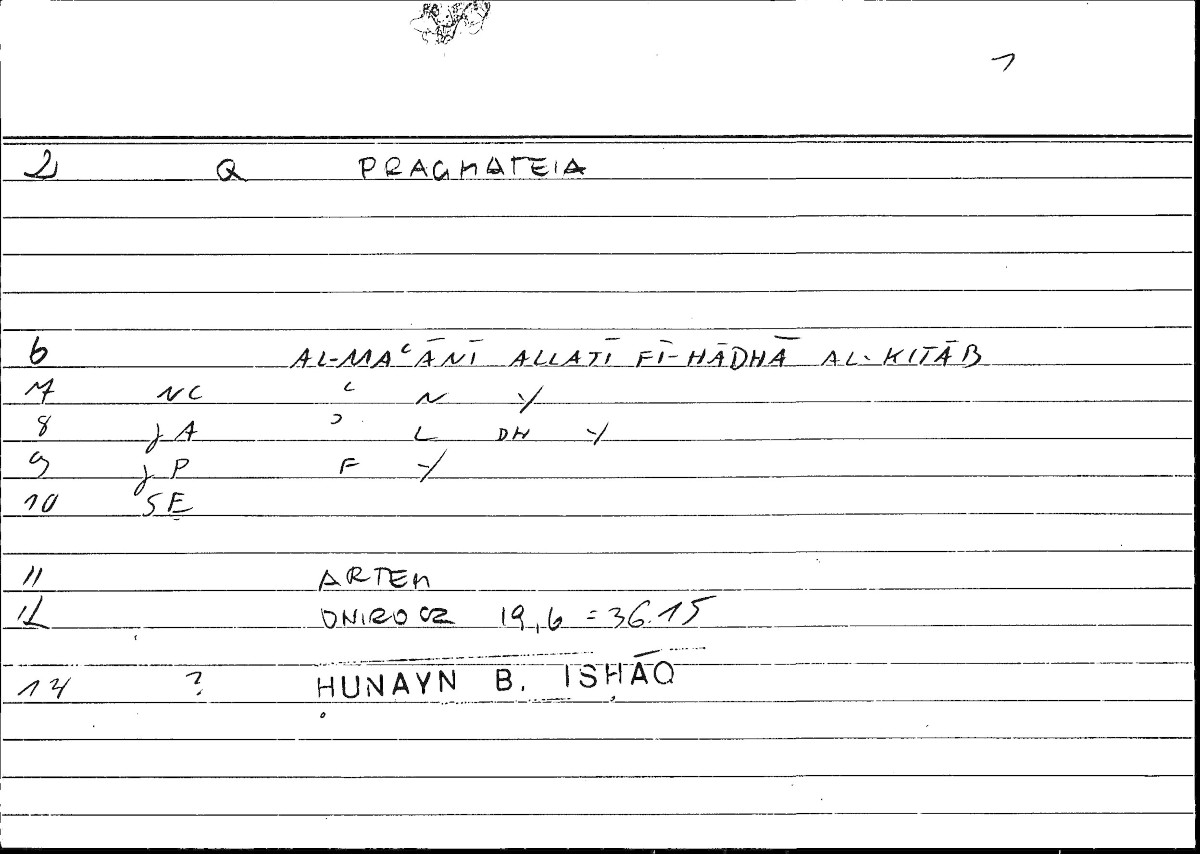 1
2 Q PRAGMATEIA
6 AL-MAʿĀNĪ ALLATĪ FĪ-HĀDHĀ AL-KITĀB
7 NC ʿ N Y
8 jA ʾ L DH Y
9 jP F Y
10 SE
11 ARTEM
12 ONIROCR 19,6 = 36.15
14 ? ḤUNAYN B. ISḤĀQ